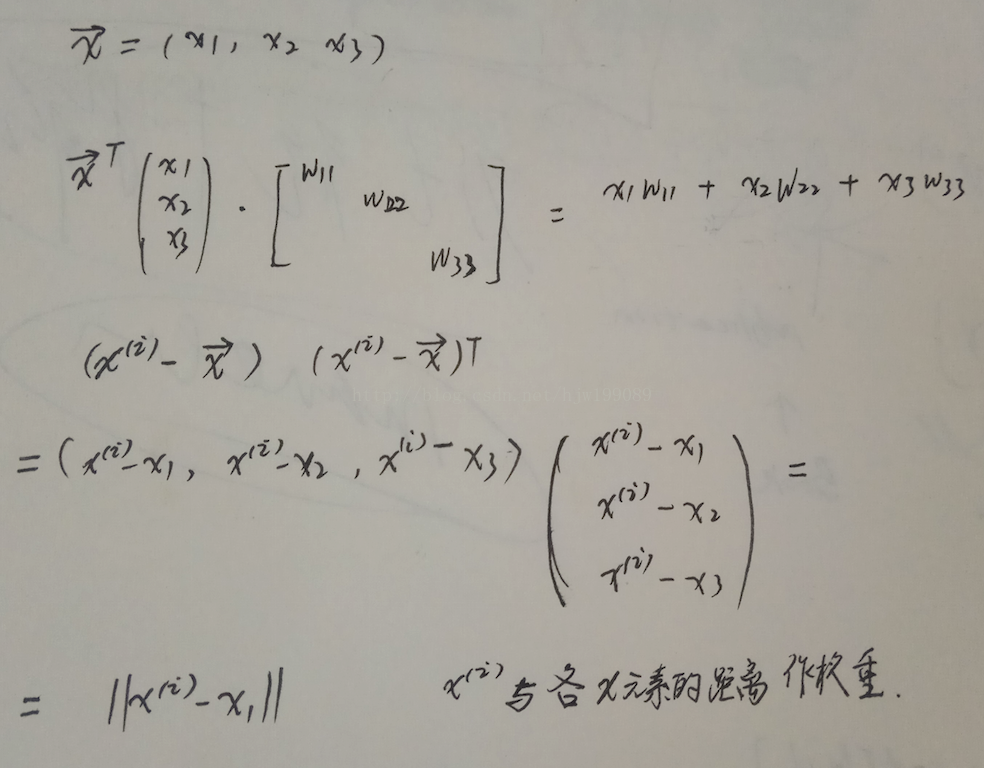 x⃗ = (x1, x2 x3)
x⃗ᵀ (x1 x2 x3) · [w11 w22 w33] = x1w11 + x2w22 + x3w33
(x⁽ⁱ⁾ - x⃗) (x⁽ⁱ⁾ - x⃗)ᵀ
= (x⁽ⁱ⁾-x1, x⁽ⁱ⁾-x2, x⁽ⁱ⁾-x3) (x⁽ⁱ⁾-x1 x⁽ⁱ⁾-x2 x⁽ⁱ⁾-x3) =
= ||x⁽ⁱ⁾-x1|| x⁽ⁱ⁾与各x元素的距离作权重.